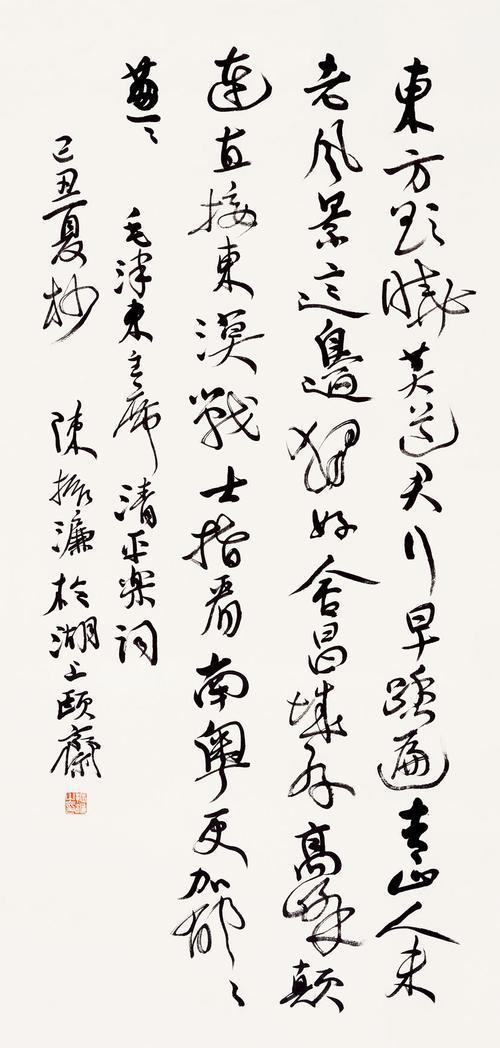 東方欲曉莫道君行早踏遍青山人未
老風景這邊獨好會昌城外高峰顛
連直接東溟戰士指看南粵更加鬱々
蔥々
毛澤東主席清平樂詞
己丑夏杪 陳振濂於湖上頤齋